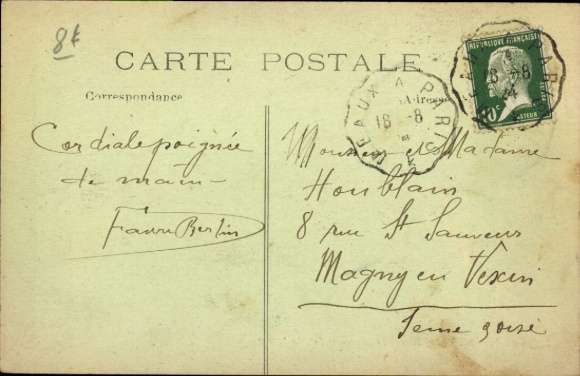 8 €
CARTE POSTALE
Correspondance
Adresse
REPUBLIQUE FRANÇAISE
10c
PASTEUR
EAUX A PARIS
18 -8
24
Cordiale poignée
de main
Favre Bertin
Monsieur et Madame
Houblain
8 rue St Sauveur
Magny en Vexin
Seine & Oise